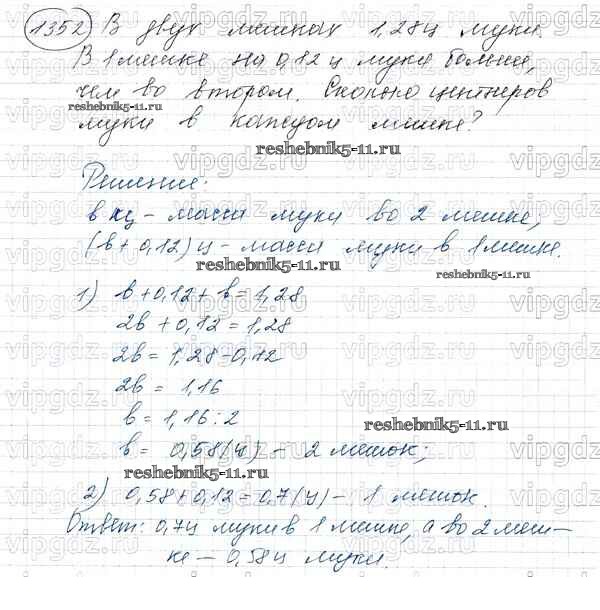 1352 В двух мешках 1,28ц муки.
В 1 мешке на 0,12 ц муки больше,
чем во втором. Сколько центнеров
reshebnik5-11.ru
муки в каждом мешке?
reshebnik5-11.ru
Решение:
в ц - масса муки во 2 мешке,
(в + 0,12) ц - масса муки в 1 мешке.
reshebnik5-11.ru
reshebnik5-11.ru
1) в + 0,12 + в = 1,28
2в + 0,12 = 1,28
2в = 1,28 - 0,12
2в = 1,16
в = 1,16 : 2
reshebnik5-11.ru
в = 0,58 (ц) - 2 мешок;
reshebnik5-11.ru
2) 0,58 + 0,12 = 0,7 (ц) - 1 мешок.
Ответ: 0,7ц муки в 1 мешке, а во 2 меш-
ке - 0,58ц муки.
vipgdz.ru